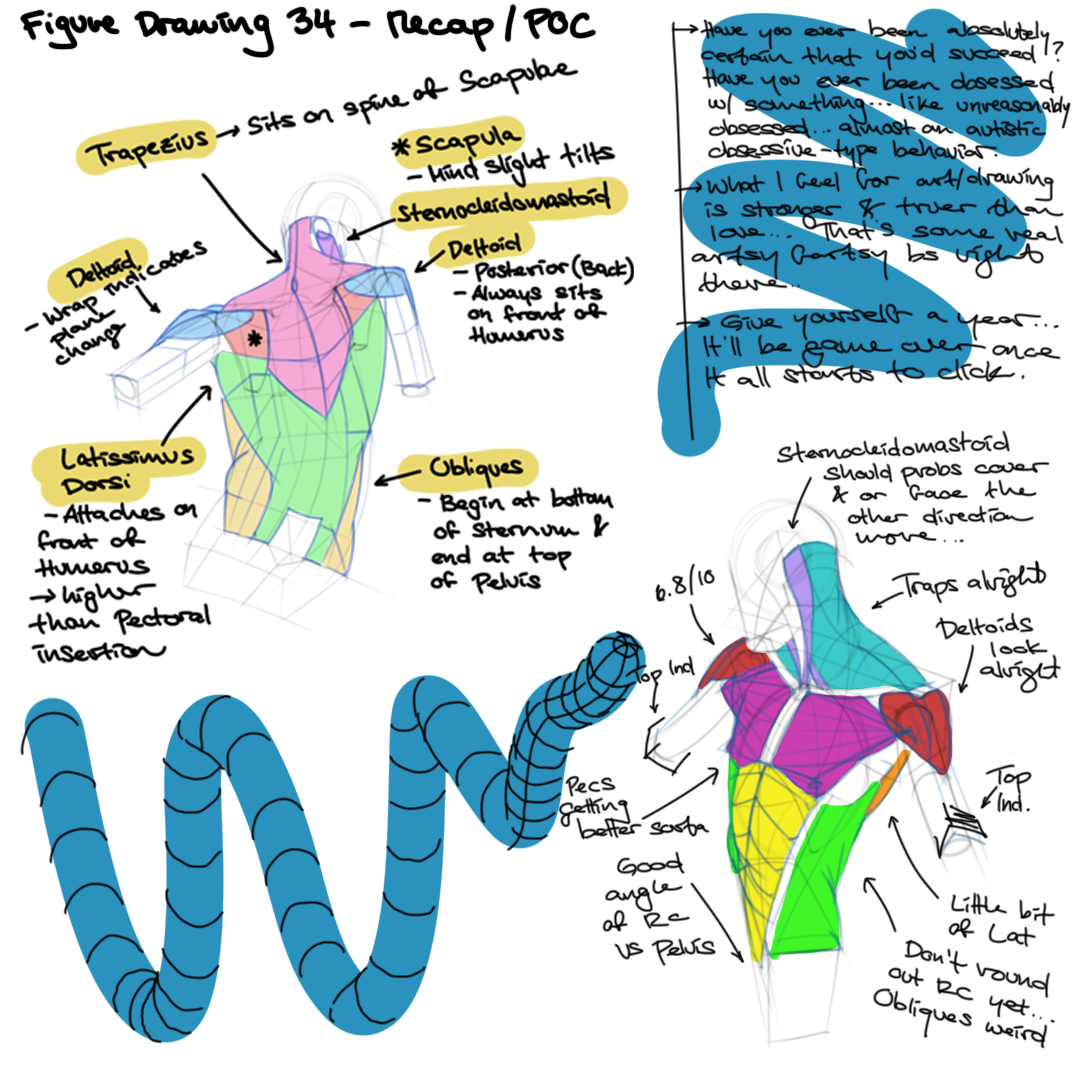 Figure Drawing 34 - Recap/POC
Trapezius → Sits on spine of Scapulae
* Scapula
- Mind slight tilts
Sternocleidomastoid
Deltoid
- Posterior (Back)
- Always sits
on front of
Humerus
Deltoid
- Wrap indicates
plane
change
*
Latissimus
Dorsi
- Attaches on
front of
Humerus
→ higher
than Pectoral
insertion
Obliques
- Begin at bottom
of Sternum &
end at top
of Pelvis
→ Have you ever been absolutely
certain that you'd succeed?
Have you ever been obsessed
w/ something... like unreasonably
obsessed... almost an autistic
obsessive-type behavior.
→ What I feel for art/drawing
is stronger & truer than
love... That's some real
artsy fartsy bs right
there..
→ Give yourself a year...
It'll be game over once
it all starts to click.
Sternocleidomastoid
should probs cover
& or face the
other direction
more...
6.8/10
Traps alright
Deltoids
look
alright
Top Ind
Top
Ind.
Pecs
getting
better sorta
Good
angle
of RC
vs Pelvis
Little bit
of Lat
Don't round
out RC yet...
Obliques weird